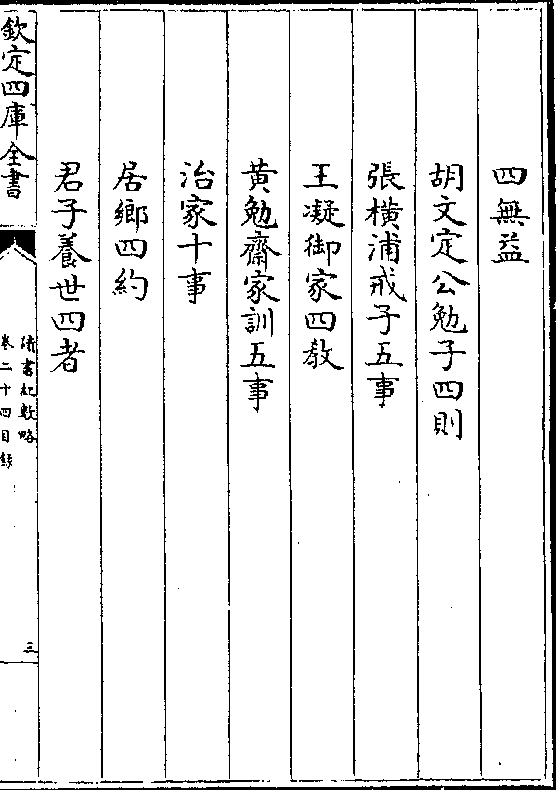 四無益
胡文定公勉子四則
張橫浦戒子五事
王凝御家四教
黄勉齋家訓五事
治家十事
居鄉四約
君子養世四者
欽定四庫全書
讀書紀數略
卷二十四目錄
三